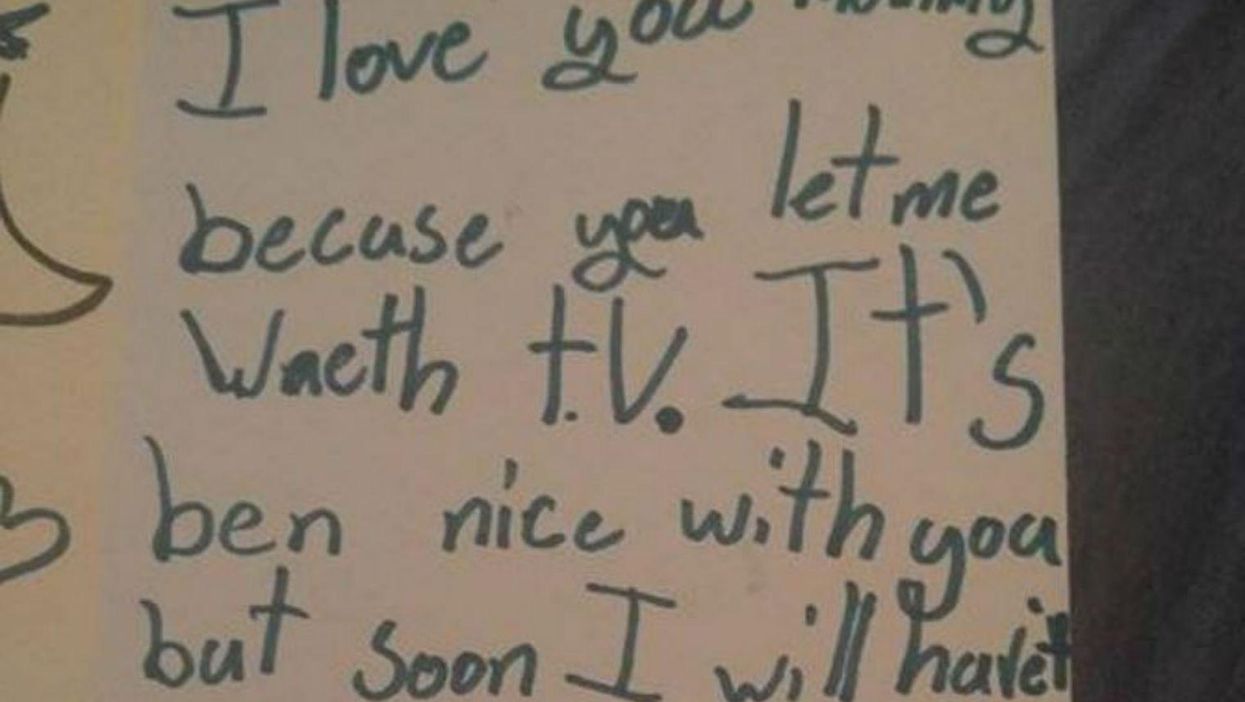 I love you mommy
becuse you let me
Waeth t.V. It's
ben nice with you
but soon I will